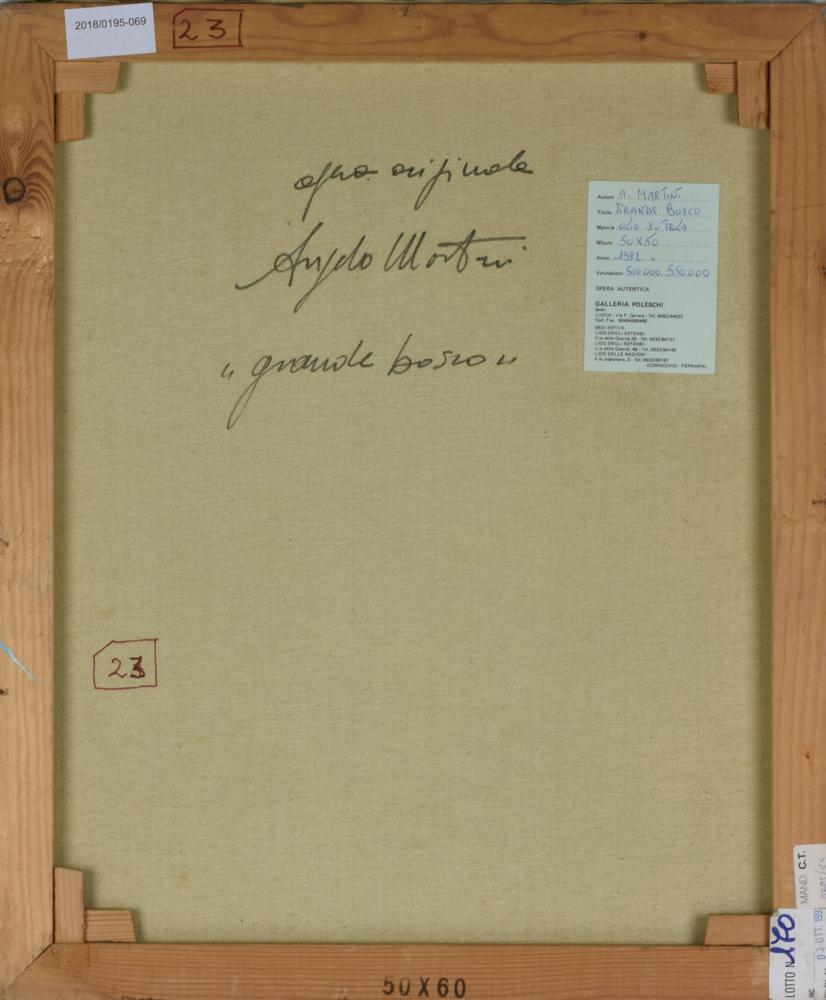 2018/0195-069
23
opera originale
Angelo Martini
"grande bosco"
Autore A. MARTINI
Titolo GRANDE BOSCO
Materia OLIO SU TELA
Misure 50X60
Anno 1982
Valutazioni 500.000. 550.000
OPERA AUTENTICA
GALLERIA POLESCHI
Sede:
LUCCA - Via F. Carrara - Tel. 0583/44022
Cod. Fisc.
SEDI ESTIVE:
LIDO DEGLI ESTENSI:
LIDO DEGLI ESTENSI:
LIDO DELLE NAZIONI:
(COMACCHIO - FERRARA)
23
MAND. C.T.
LOTTO N. 170
03 OTT.
50X60